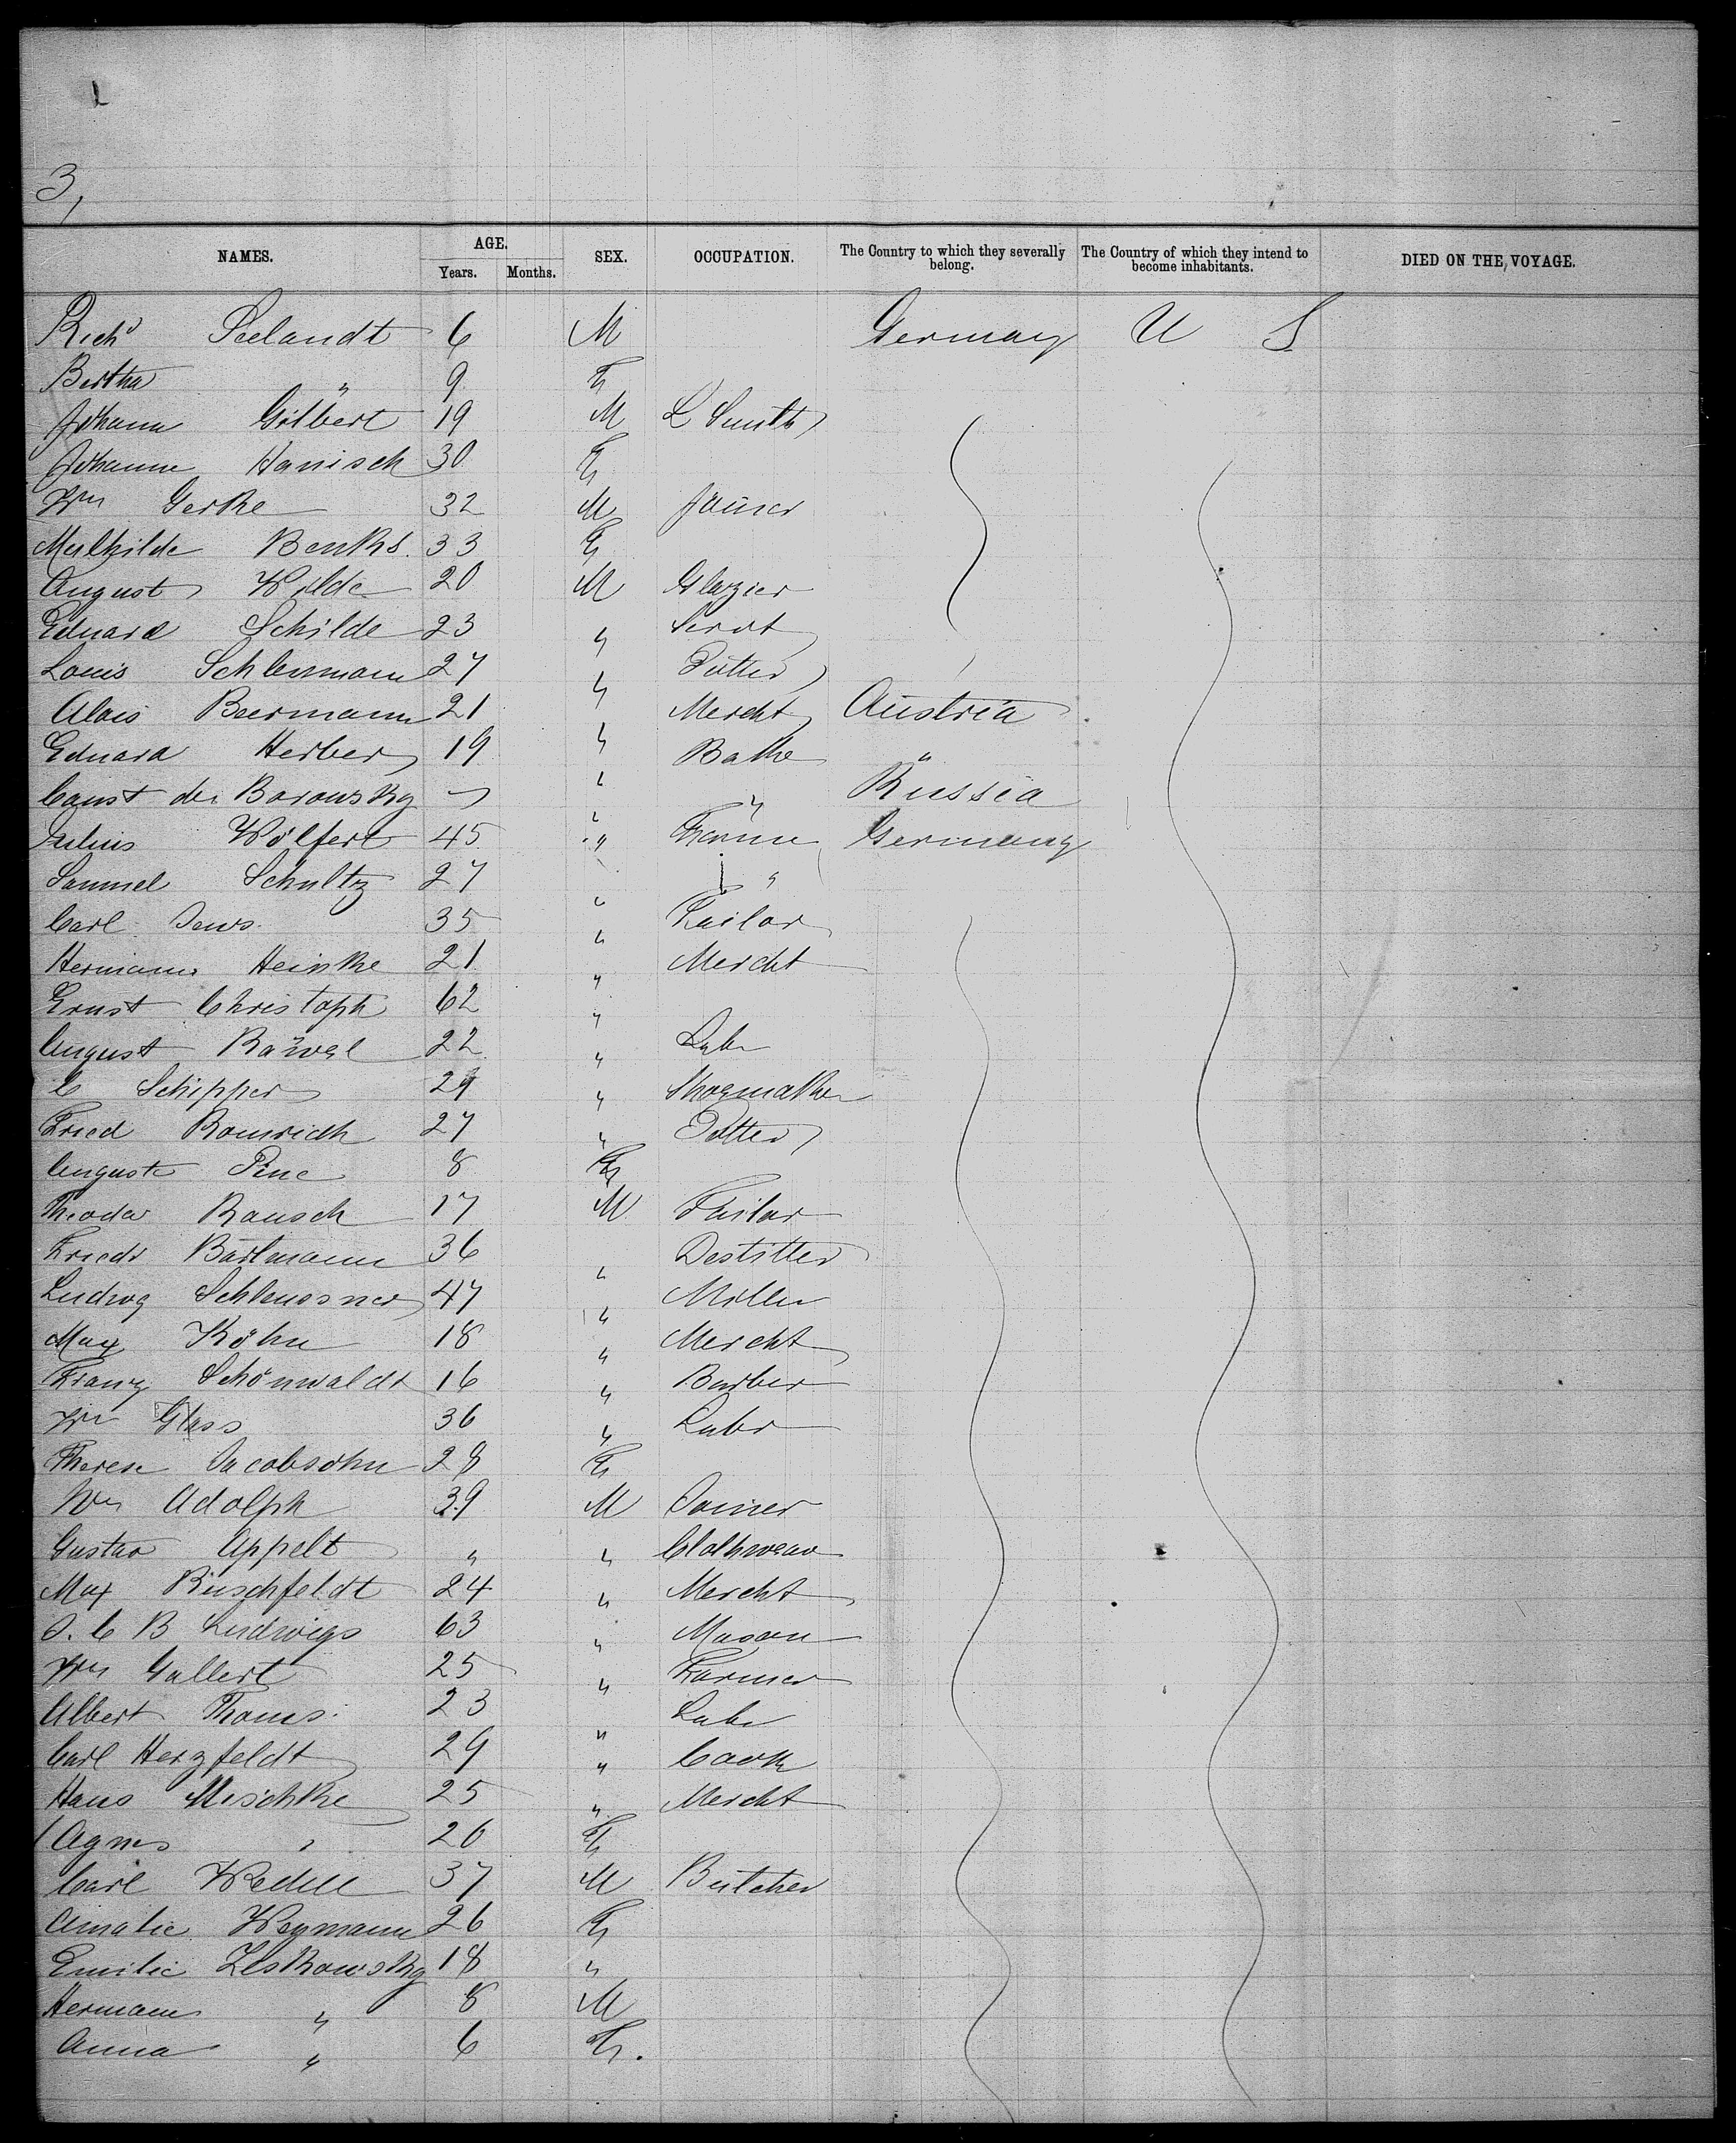 3,
NAMES. AGE. Years. Months. SEX. OCCUPATION. The Country to which they severally belong. The Country of which they intend to become inhabitants. DIED ON THE VOYAGE.
Richd Seelandt 6 M Germany U S
Bertha " 9 F
Johann Gilbert 19 M L Smith
Johanne Hanisch 30 F
Wm Gerke 32 M Joiner
Mathilde Benks. 33 F
August Wilde 20 M Glazier
Eduard Schilde 23 " Servt
Louis Schlermann 27 " Potter
Alois Beermann 21 " Mercht Austria
Eduard Herber 19 " Bake "
Const de Borowsky " " Russia
Julius Wölfert 45 " Farme Germany
Samuel Schultz 27 " "
Carl Jews. 35 " Tailor
Hermann Heinke 21 " Mercht
Ernst Christoph 62 "
August Bäwel 22 " Labr
C Schipper 29 " Shoemaker
Fried Romridh 27 " Potter
Auguste Pine 8 F
Theodor Rausch 17 M Tailor
Friedr Bärtmann 36 " Destiller
Ludwg Schleussner 47 " Miller
Max Köhn 18 " Mercht
Franz Schönwaldt 16 " Barber
Wm Glass 36 " Labr
Therese Jacobsohn 28 F
Wm Adolph 39 M Joiner
Gustav Appelt " " Clothweav
Max Ruschfeldt 24 " Mercht
J. C B Ludwigs 63 " Mason
Wm Gallert 25 " Farmer
Albert Thoms. 23 " Labr
Carl Herzfeldt 29 " Cook
Hans Mischke 25 " Mercht
Agnes " 20 F
Carl Wedell 37 M Butcher
Amalie Weymann 26 F
Emilie Leskowsky 18 "
Hermann " 8 M
Anna " 6 F.